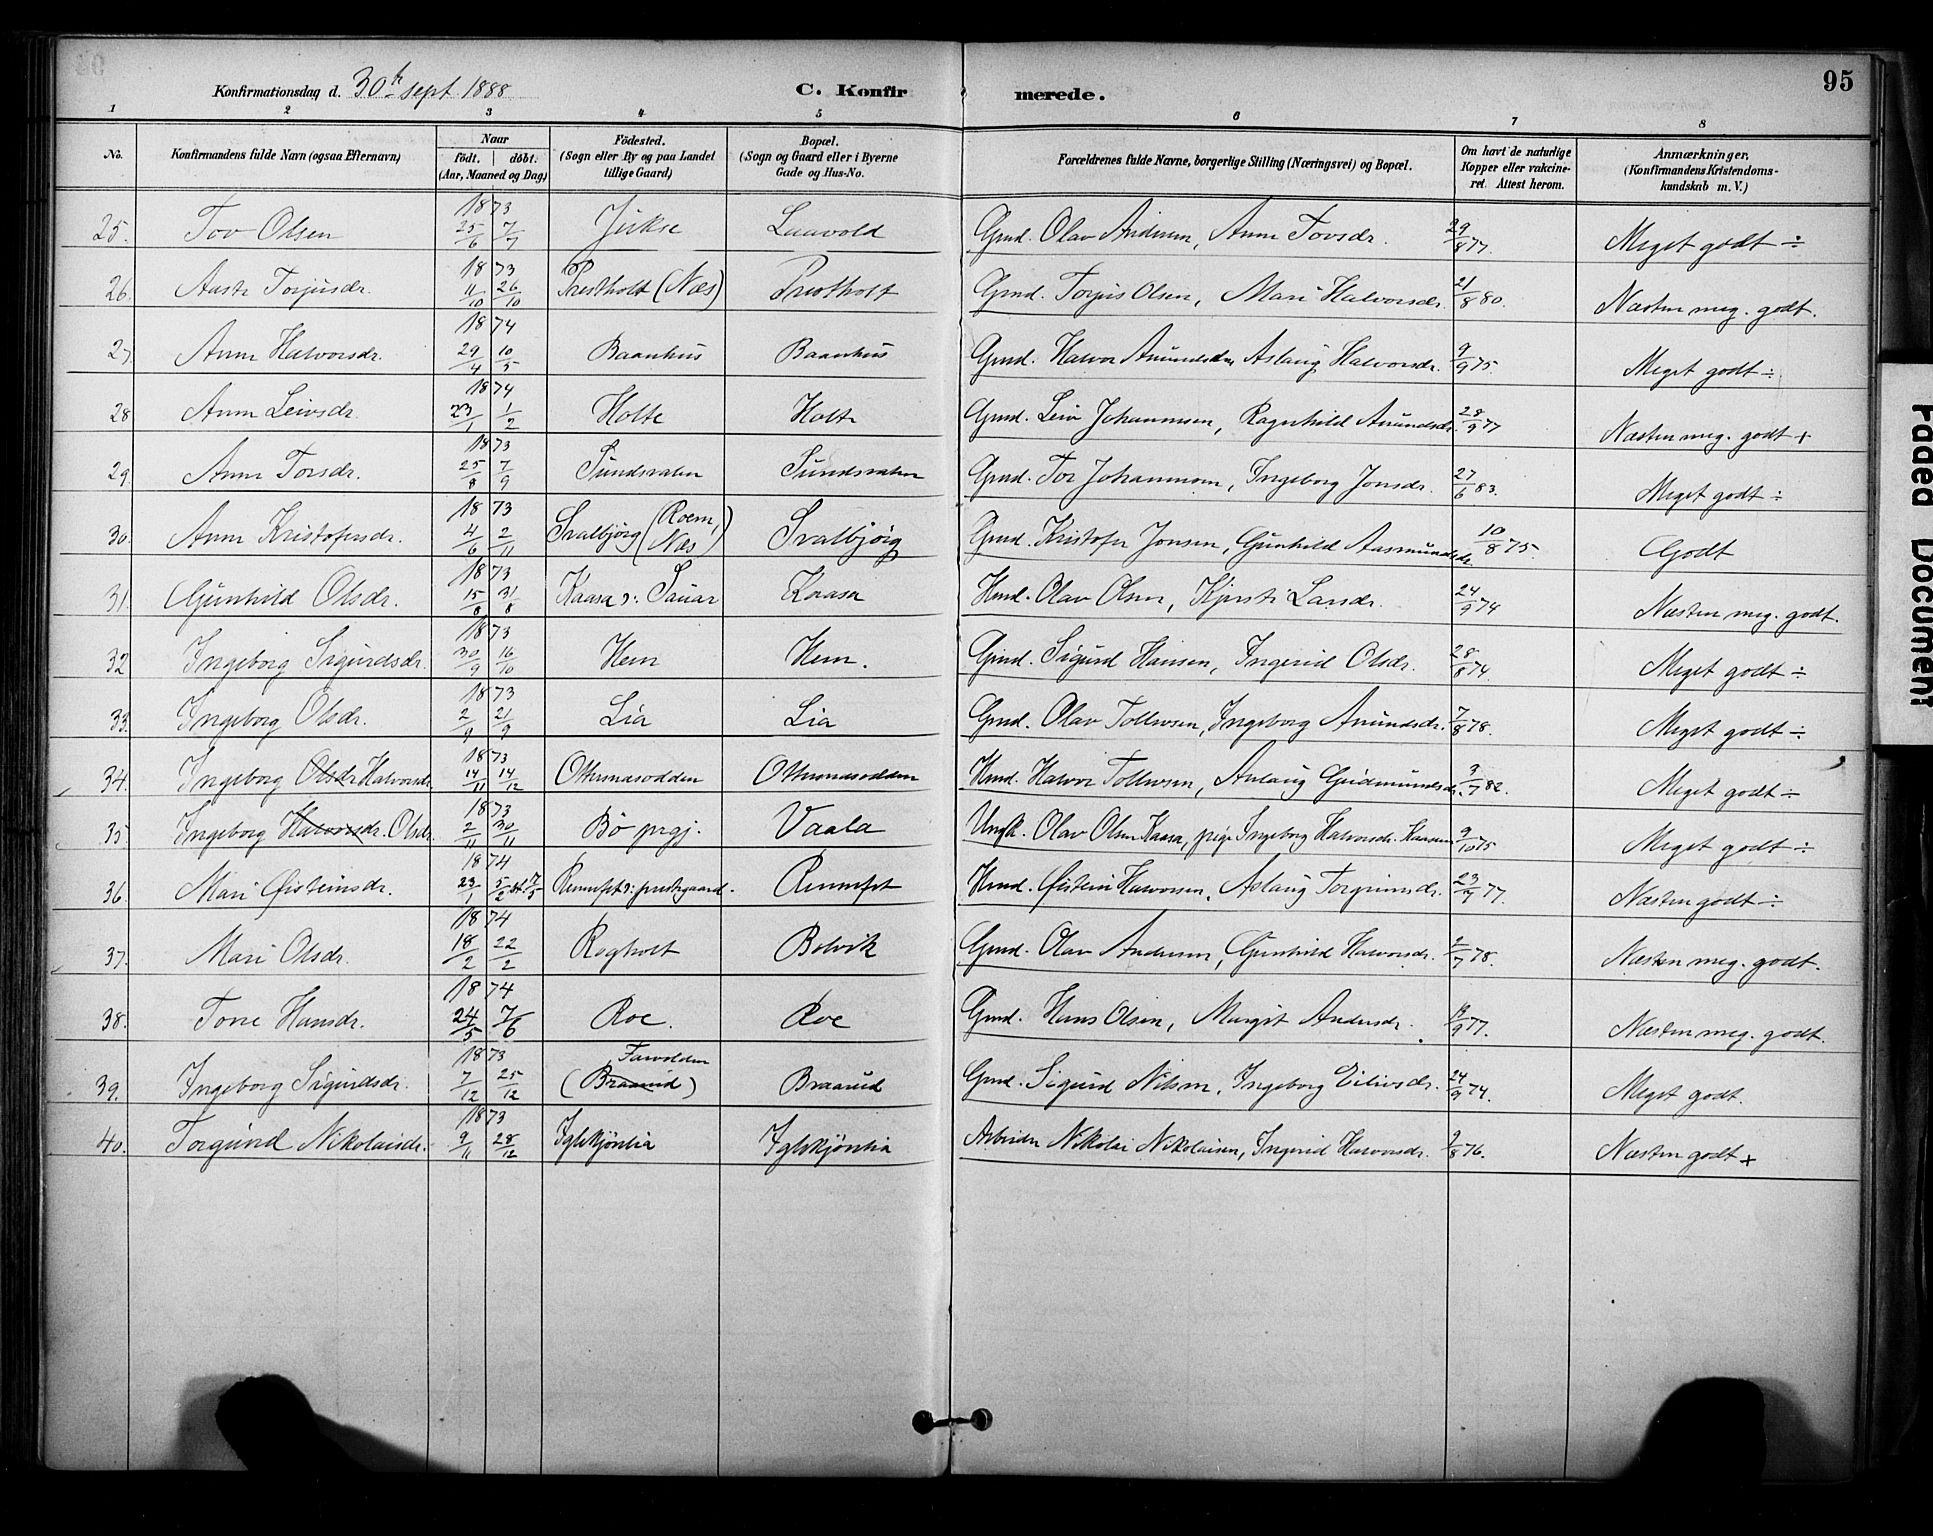 95
Konfirmationsdag d. 30te sept 1888 C. Konfirmerede.
1 2 3 4 5 6 7 8
No. Konfirmandens fulde Navn (ogsaa Efternavn) Naar födt. döbt. (Aar, Maaned og Dag) Födested. (Sogn eller By og paa Landet tillige Gaard) Bopæl. (Sogn og Gaard eller i Byerne Gade og Hus-No. Forældrenes fulde Navne, borgerlige Stilling (Næringsvei) og Bopæl. Om havt de naturlige Kopper eller vakcineret. Attest herom. Anmærkninger. (Konfirmandens Kristendomskundskab m. V.)
25. Tov Olsen 1873 25/6 7/7 Jukse Laavold Gmd. Olav Andersen, Anne Tovsdr. 29/8 77. Meget godt ÷
26. Aaste Torjusdr. 1873 11/10 26/10 Prestholt (Næs) Prestholt Gmd. Torjus Olsen, Mari Halvorsdr. 21/8 80. Næsten meg. godt.
27. Anne Halvorsdr. 1874 29/4 10/5 Baanhus Baanhus Gmd. Halvor Amundsen Aslaug Halvorsdr. 9/9 75 Meget godt ÷
28 Anne Leivsdr. 1874 23/1 1/2 Holte Holte Gmd. Leiv Johannesen, Ragnhild Amundsdr. 28/9 77 Næsten meg. godt +
29. Anne Torsdr. 1873 25/8 7/9 Sundsvalen Sundsvalen Gmd. Tor Johannesen, Ingeborg Jonsdr. 27/6 83. Meget godt ÷
30. Anne Kristofersdr. 1873 4/6 2/11 Svalbjörg (Roem, Næs) Svalbjörg Gmd. Kristofer Jonsen, Gunhild Aasmundsdr. 10/8 75. Godt
31. Gunhild Olsdr. 1873 15/8 31/8 Kaasa i Sauar Kaasa Hmd. Olav Olsen, Kjersti Larsdr. 24/9 74 Næsten meg. godt.
32 Ingeborg Sigurdsdr. 1873 30/9 16/10 Hem Hem. Gmd. Sigurd Hansen, Ingerid Olsdr. 28/8 74. Meget godt ÷
33. Ingeborg Olsdr. 1873 2/9 21/9 Lia Lia Gmd. Olav Tollevsen, Ingeborg Amundsdr. 7/8 78. Meget godt ÷
34. Ingeborg Olsdr Halvorsdr. 1873 14/11 14/12 Otternasodden Otternasodden Hmd. Halvor Tollevsen, Aslaug Gudmundsdr. 3/7 82. Meget godt ÷
35. Ingeborg Halvorsdr. Olsdr. 1873 2/11 30/11 Bö prgj. Vaala Ungk. Olav Olsen Kaasa, pige Ingeborg Halvorsdr. Kaasene 9/10 75 Meget godt ÷
36. Mari Øisteinsdr. 1874 23/1 5/2 st. 7/5 prestegaard. Hmd. Øistein Halvorsen, Aslaug Torgrimsdr. 23/7 77. Næsten godt ÷
37. Mari Olsdr. 1874 18/2 22/2 Rogholt Bolvik Gmd. Olav Andersen, Gunhild Halvorsdr. 2/7 78. Næsten meg. godt.
38. Tone Hansdr. 1874 24/5 7/6 Roe. Roe Gmd. Hans Olsen, Margit Andersdr. 9 77. Næsten meg. godt.
39. Ingeborg Sigurdsdr. 1873 7/12 25/12 Farvolden (Braarud) Braarud Gmd. Sigurd Nilsen, Ingeborg Eilivsdr. 24/9 74. Meget godt.
40. Torgund Nikolaisdr. 1873 9/11 28/12 Iglekjönlia Iglekjönlia Arbeider Nikolai Nikolaisen, Ingerid Halvorsdr. 9/8 76. Næsten godt +
Faded Document